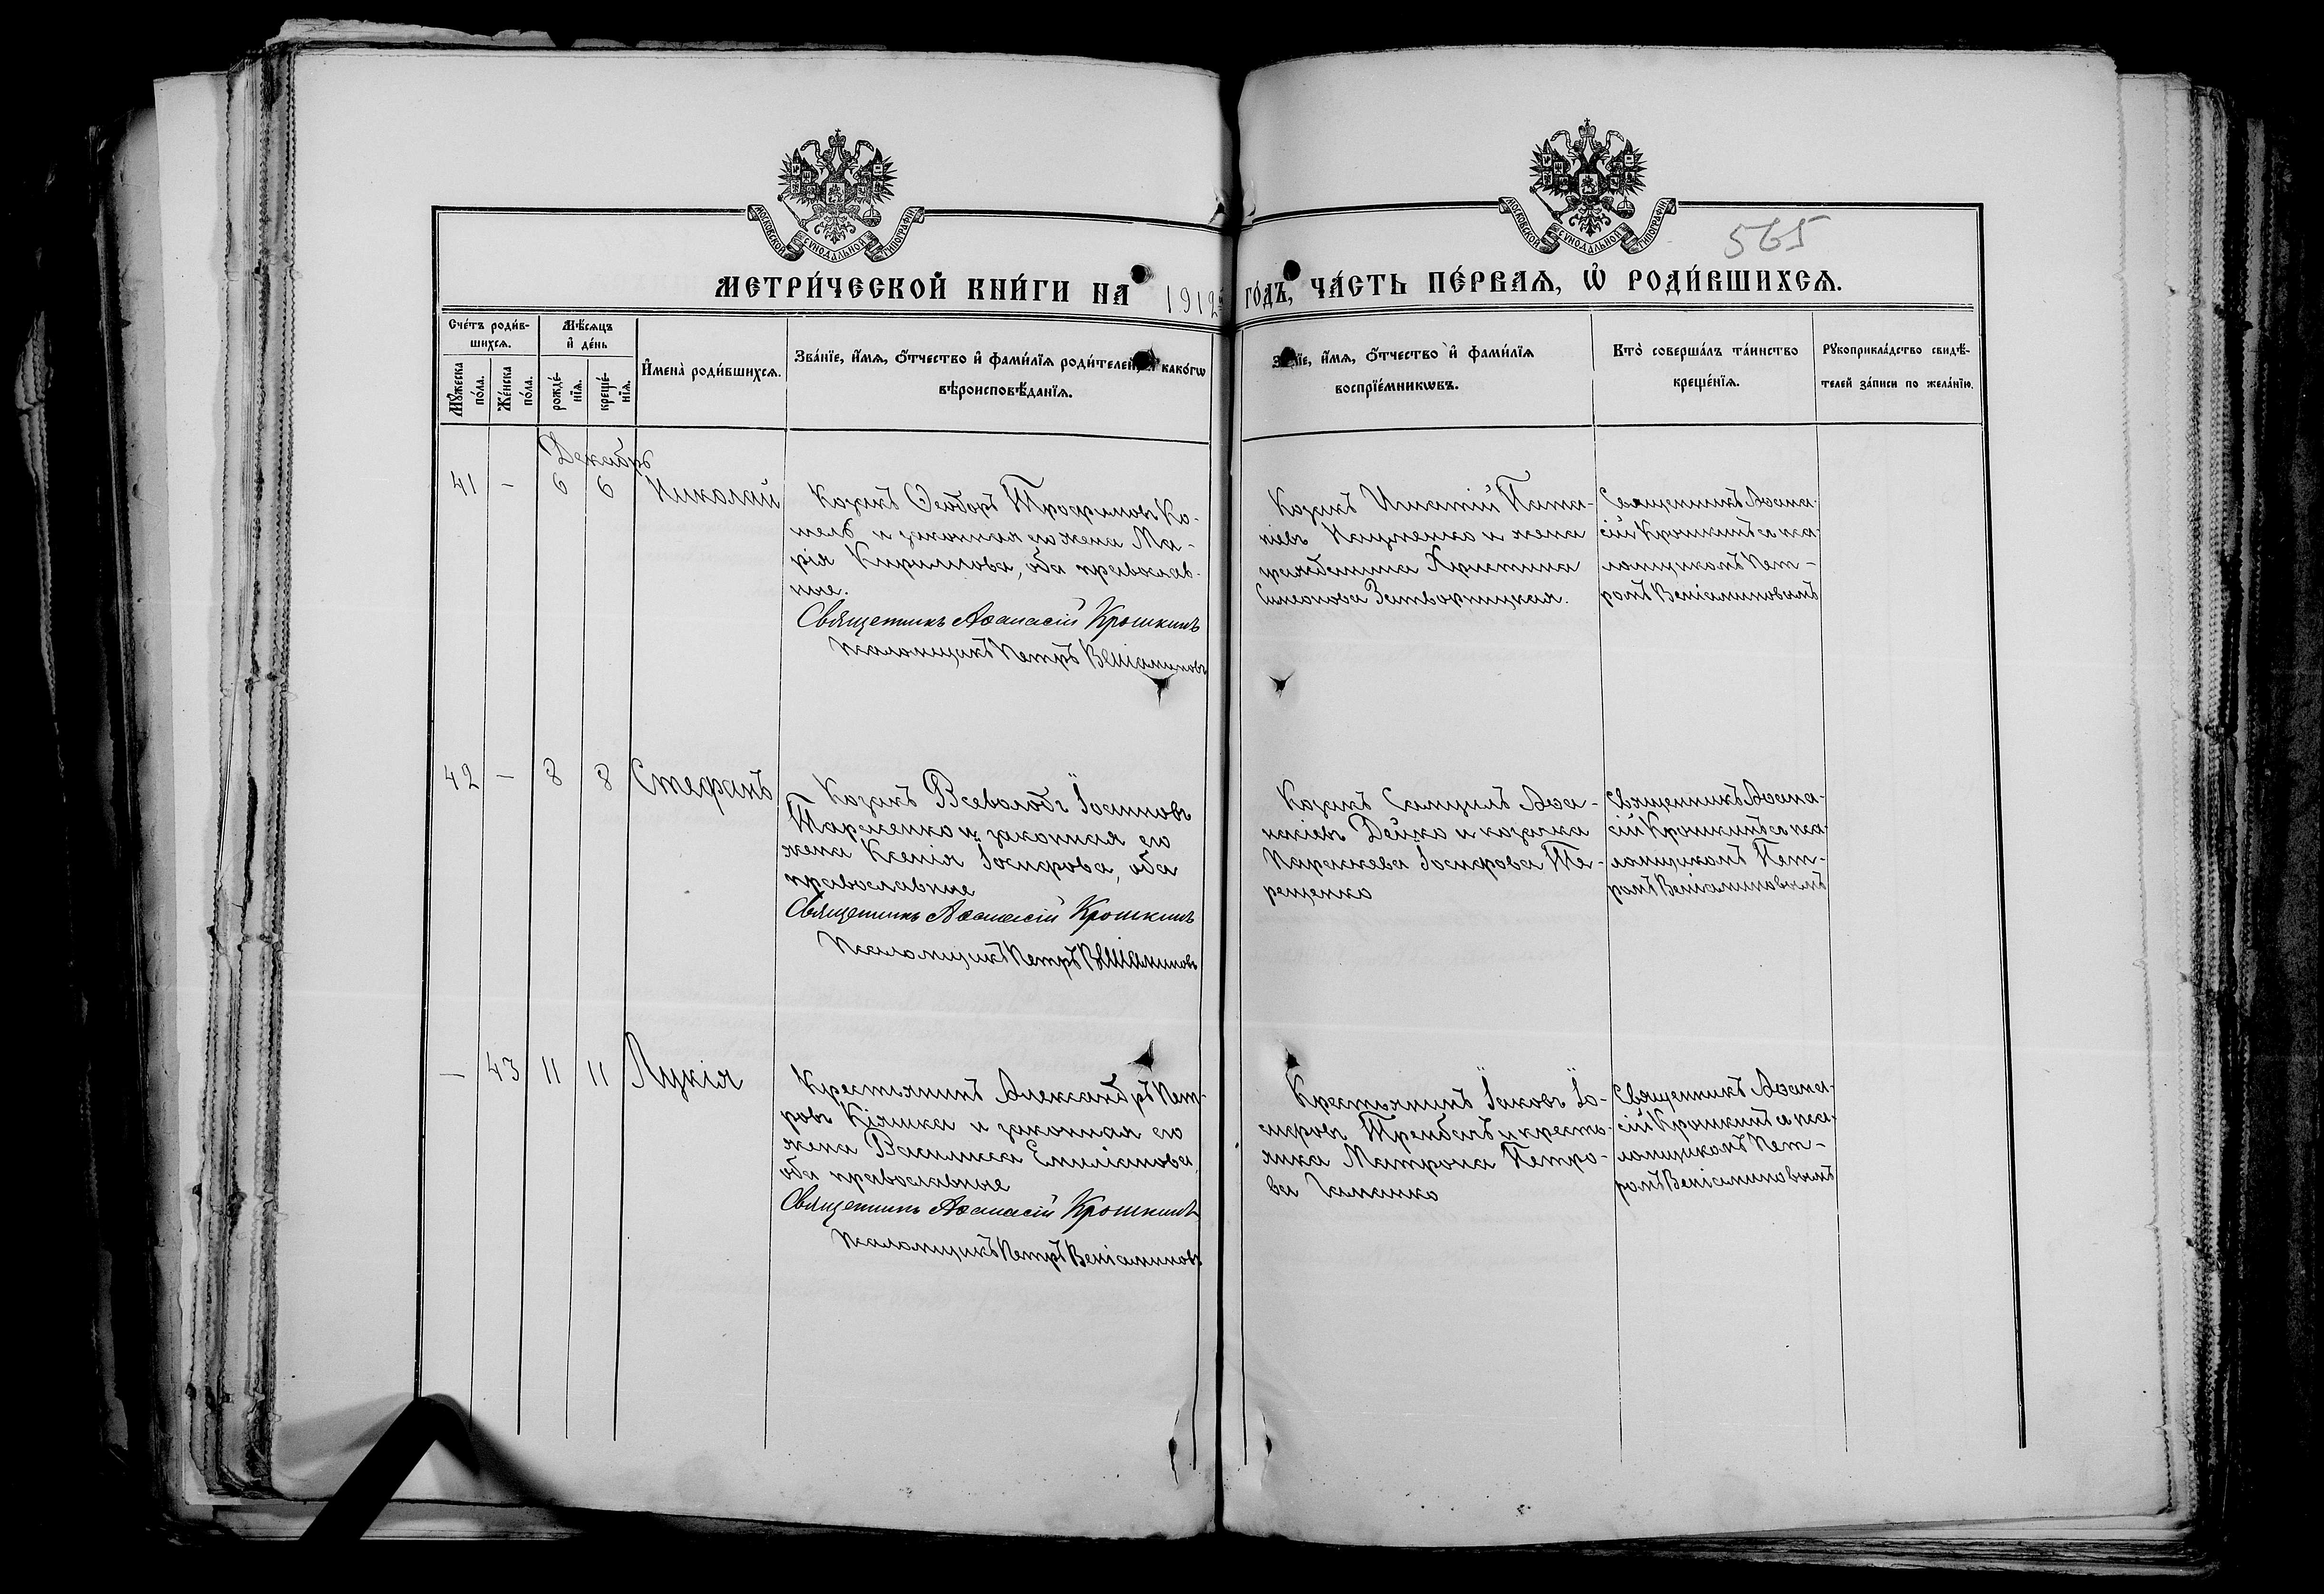 МОСКОВСКОЙ СУНОДАЛЬНОЙ ТИПОГРАФІИ
МОСКОВСКОЙ СУНОДАЛЬНОЙ ТИПОГРАФІИ
565
МЕТРИ́ЧЕСКОЙ КНИ́ГИ НА 1912 ГО́ДЪ, ЧА́СТЬ ПЕ́РВАѦ, Ѡ҆ РОДИ́ВШИХСѦ.
Сче́тъ роди́в-
шихсѧ.
Мꙋ́жеска
по́ла.
Же́нска
по́ла.
Мѣ́сѧцъ
и҆ де́нь
рожде́-
нїѧ.
креще́-
нїѧ.
И҆мена̀ роди́вшихсѧ.
Зва́нїе, и҆́мѧ, о҆́тчество и҆ фами́лїѧ роди́телей, како́гѡ
вѣроисповѣ́данїѧ.
и҆́мѧ, о҆́тчество и҆ фами́лїѧ
воспрїе́мникѡвъ.
Кто̀ соверша́лъ та́инство
креще́нїѧ.
Рꙋкоприкла́дство свидѣ́-
телей за́писи по жела́нїю.
Декабрь
41 - 6 6 Николай
Козакъ Ѳеодоръ Трофимовъ Ко-
и законная его жена Ма-
рія Кириллова, оба православ-
ные.
Священникъ Аѳанасій Крошкинъ
Псаломщикъ Петръ Веніаминовъ
Козакъ Игнатій
Науменко и жена
урядника Христина
Симеонова Затворницкая.
Священникъ Аѳана-
сій Крошкинъ съ пса-
ломщикомъ Пет-
ромъ Веніаминовымъ
42 — 8 8 Стефанъ
Козакъ Всеволодъ Іоанновъ
Тарасенко и законная его
жена Ксенія Іосифова, оба
православные
Священникъ Аѳанасій Крошкинъ
Псаломщикъ Петръ Веніаминовъ
Козакъ Самуилъ Аѳа-
насіевъ Дейко и козачка
Параскева Іосифова Те-
рещенко
Священникъ Аѳана-
сій Крошкинъ съ пса-
ломщикомъ Пет-
ромъ Веніаминовымъ
— 43 11 11 Лукія
Крестьянинъ Александръ Пет-
ровъ Кіяшка и законная его
жена Василисса Емиліанова,
оба православные
Священникъ Аѳанасій Крошкинъ
Псаломщикъ Петръ Веніаминовъ
Крестьянинъ Іаковъ Іо-
сифовъ и кресть-
янка Матрона Петро-
ва
Священникъ Аѳана-
сій Крошкинъ съ пса-
ломщикомъ Пет-
ромъ Веніаминовымъ